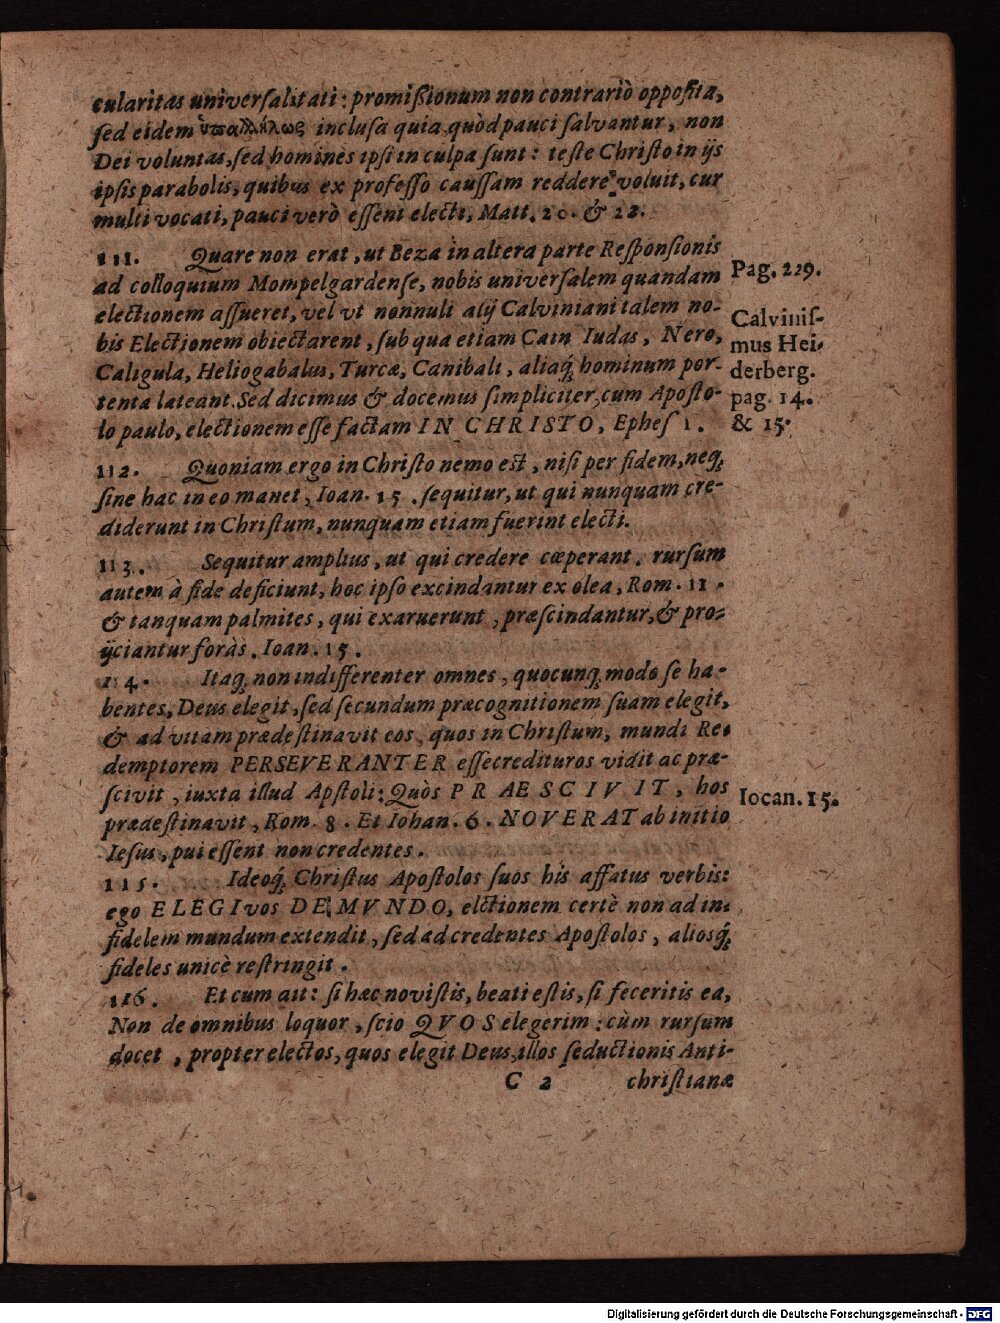 cularitas universalitati: promißionum non contrariò opposita,
sed eidem ὑπαλλήλως inclusa quia quòd pauci salvantur, non
Dei voluntas, sed homines ipsi in culpa sunt: teste Christo in ijs
ipsis parabolis, quibus ex professo caussam reddere voluit, cur
multi vocati, pauci verò essent electi, Matt. 20. & 22.
111. Quare non erat, ut Beza in altera parte Responsionis
ad colloquium Mompelgardense, nobis universalem quandam
Pag. 229.
electionem assueret, vel vt nonnuli alij Calviniani talem no-
bis Electionem obiectarent, sub qua etiam Cain Iudas, Nero,
Caligula, Heliogabalus, Turcæ, Canibali, aliaq́; hominum por-
tenta lateant. Sed dicimus & docemus simpliciter, cum Aposto-
lo paulo, electionem esse factam IN CHRISTO, Ephes 1.
Calvinis-
mus Hei-
derberg.
pag. 14.
& 15.
112. Quoniam ergo in Christo nemo est, nisi per fidem, neq́;
sine hac in eo manet, Ioan. 15. sequitur, ut qui nunquam cre-
diderunt in Christum, nunquam etiam fuerint electi.
113. Sequitur amplius, ut qui credere cœperant, rursum
autem à fide deficiunt, hoc ipso excindantur ex olea, Rom. 11.
& tanquam palmites, qui exaruerunt, præscindantur, & pro-
ijciantur foràs. Ioan. 15.
114. Itaq́; non indifferenter omnes, quocunq́; modo se ha-
bentes, Deus elegit, sed secundum præcognitionem suam elegit,
& ad vitam prædestinavit eos, quos in Christum, mundi Re-
demptorem PERSEVERANTER esse credituros vidit ac præ-
scivit, iuxta illud Apstoli: Quòs PRAESCIVIT, hos
Iocan. 15.
prædestinavit, Rom. 8. Et Iohan. 6. NOVERAT ab initio
Iesus, pui essent non credentes.
115. Ideoq́; Christus Apostolos suos his affatus verbis:
ego ELEGI vos DE MVNDO, elctionem certè non ad in-
fidelem mundum extendit, sed ad credentes Apostolos, aliosq́;
fideles unicè restringit.
116. Et cum ait: si hæc novistis, beati estis, si feceritis ea,
Non de omnibus loquor, scio QVOS elegerim: cùm rursum
docet, propter electos, quos elegit Deus, illos seductionis Anti-
C 2 christianæ
Digitalisierung gefördert durch die Deutsche Forschungsgemeinschaft - DFG